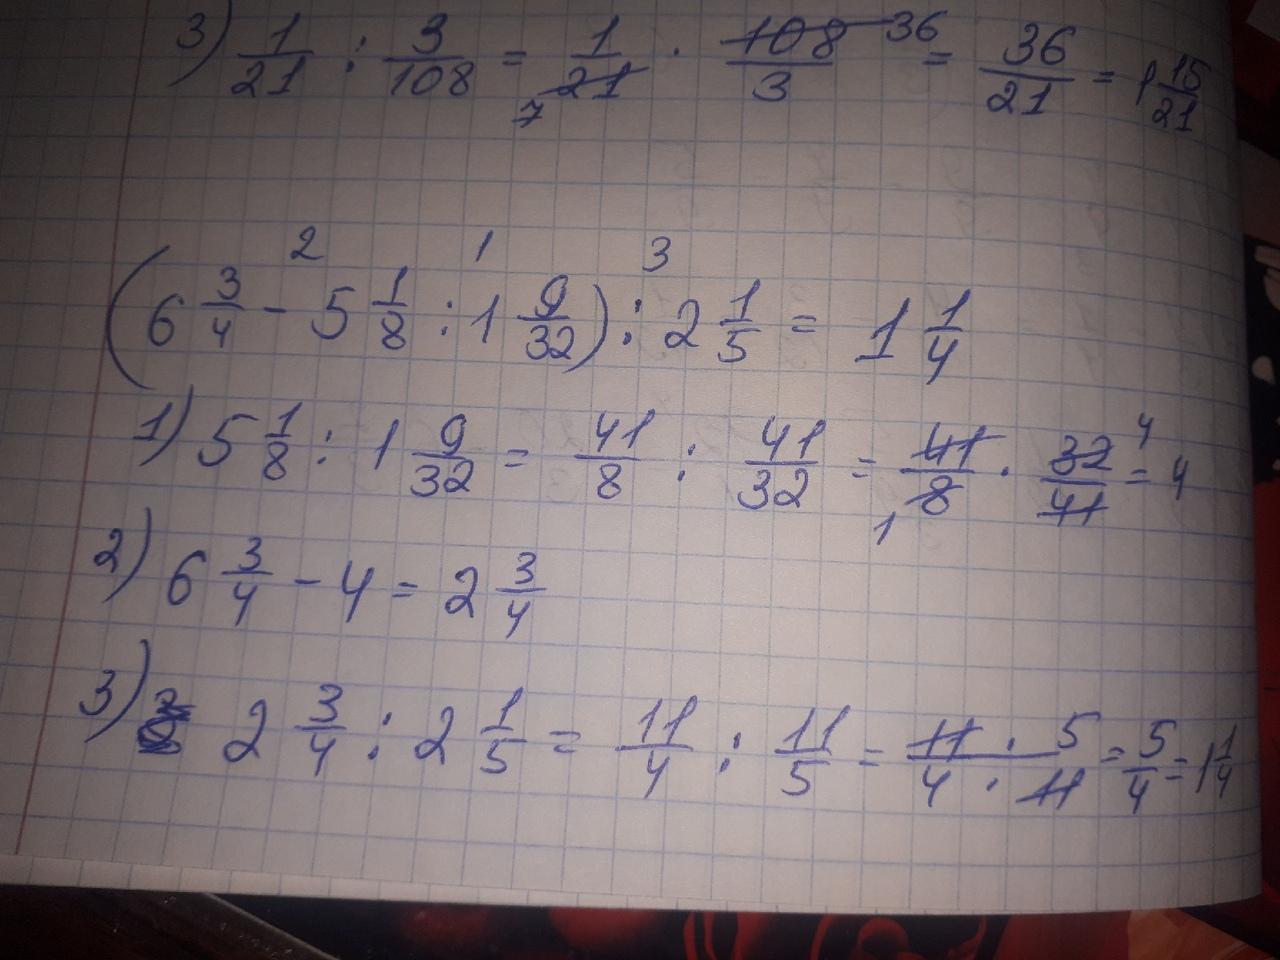 3) 1/21 : 3/108 = 1/21 7 · 108/3 36 = 36/21 = 1 15/21
2 1 3
(6 3/4 - 5 1/8 : 1 9/32) : 2 1/5 = 1 1/4
1) 5 1/8 : 1 9/32 = 41/8 : 41/32 = 41/8 1 · 32/41 4 = 4
2) 6 3/4 - 4 = 2 3/4
3) 2 3/4 : 2 1/5 = 11/4 : 11/5 = 11 · 5/4 · 11 = 5/4 = 1 1/4